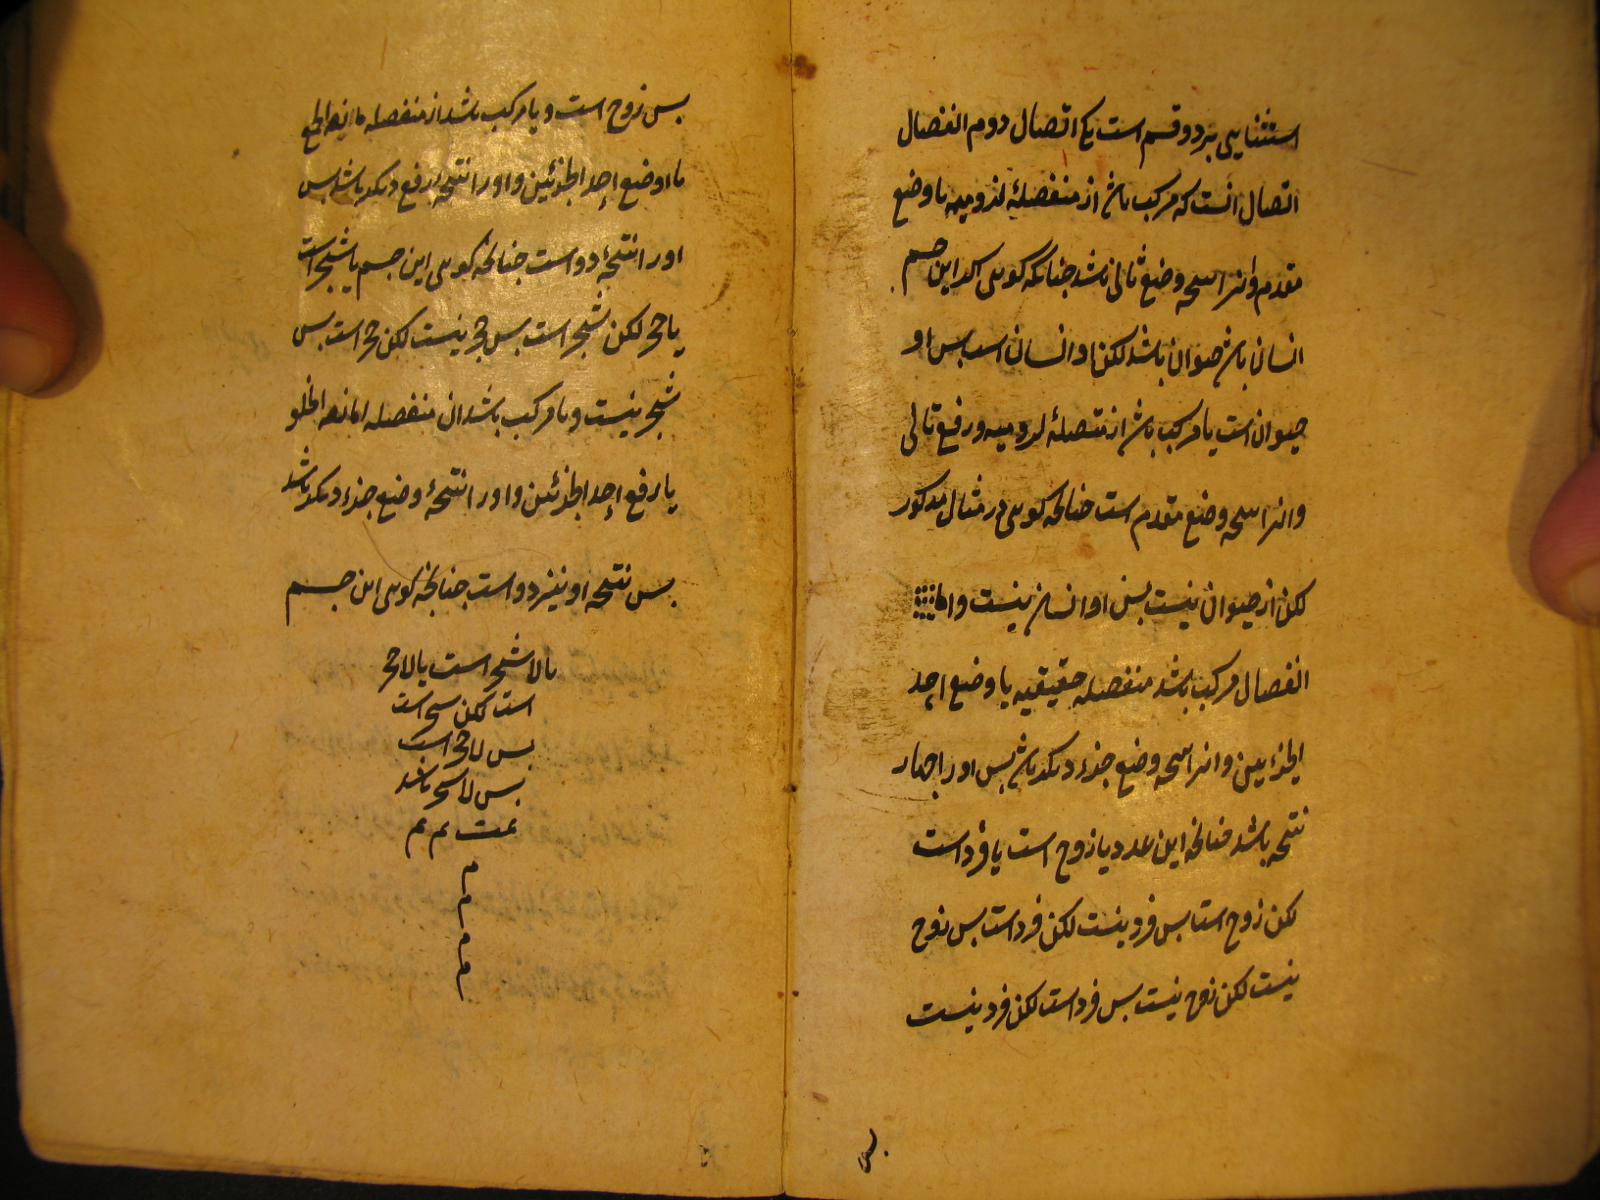 استثنایی بر دو قسم است یکی اتصال دوم انفصال
اتصال انست که مرکب باشد از منفصلهٔ لزومیه با وضع
مقدم و انرا نتیجه وضع تالی باشد چنانکه کوئی اکر این جسم
انسان باشد حیوان باشد لکن او انسان است بس او
حیوان است یا مرکب باشد از متصلهٔ لزومیه و رفع تالی
و انرا نتیجه وضع مقدم است چنانکه کوئی در مثال مذکور
لکن از حیوان نیست بس او انسان نیست و اما
انفصال مرکب باشد منفصله حقیقیه با وضع احد
الجزئین و انرا نتیجه وضع جزء دیکر باشد بس او را چهار
نتیجه باشد چنانکه این عدد یا زوج است یا فرد است
لکن زوج است بس فرد نیست لکن فرد است بس زوج
نیست لکن زوج نیست بس فرد است لکن فرد نیست
بس
بس زوج است و یا مرکب باشد از منفصله مانعة الجمع
با وضع احد الجزئین و او را نتیجه رفع دیکر باشد بس
او را نتیجهٔ دو است چنانکه کوئی این جسم یا شجر است
یا حجر لکن شجر است بس حجر نیست لکن حجر است بس
شجر نیست و یا مرکب باشد ان منفصله مانعة الخلو
یا رفع احد الجزئین و او را نتیجهٔ وضع جزء دیکر باشد
بس نتیجه او نیز دو است چنانکه کوئی این جسم
یا لا شجر است یا لا حجر
است لکن شجر است
بس لا حجر است
بس لا شجر باشد
تمت تم تم
م
م
م
م